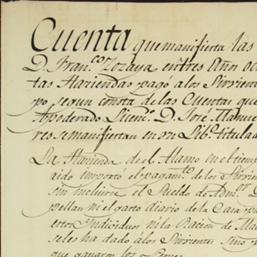 Cuenta que manifiesta las
D. Fran.co Zozaya en tres Años oc
tas Haciendas pagó a los Sirvient
po segun consta de las Cuentas que
Apoderado Licenc. D. José Manue
res se manifiestan en su Lib.o titulad
La Hacienda de el Alamo en el tiemp
aido importó el pagam.to de los Sirvien
sin incluirse el Sueldo de Adm.or D.
pellan ni el gasto diario de la Casa p
estos Individuos ni la Racion de Ma
se les ha dado a los Sirvientes sino p
que ganaron los Peones